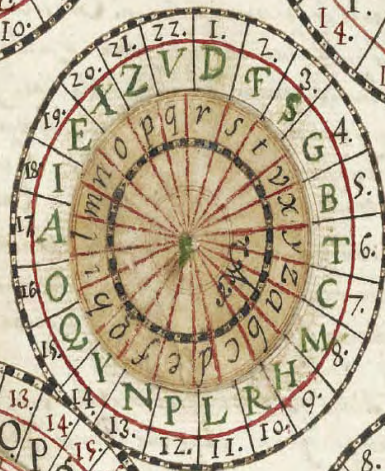 1. 2. 3. 4. 5. 6. 7. 8. 9. 10. 11. 12. 13. 14. 15. 16. 17. 18. 19. 20. 21. 22.
D F S G B T C M H R L P N Y Q O A I E X Z V
q r s t v x y z a b c d e f g h i l m n o p
10.
14.
13.
14.
15.
O p
8.